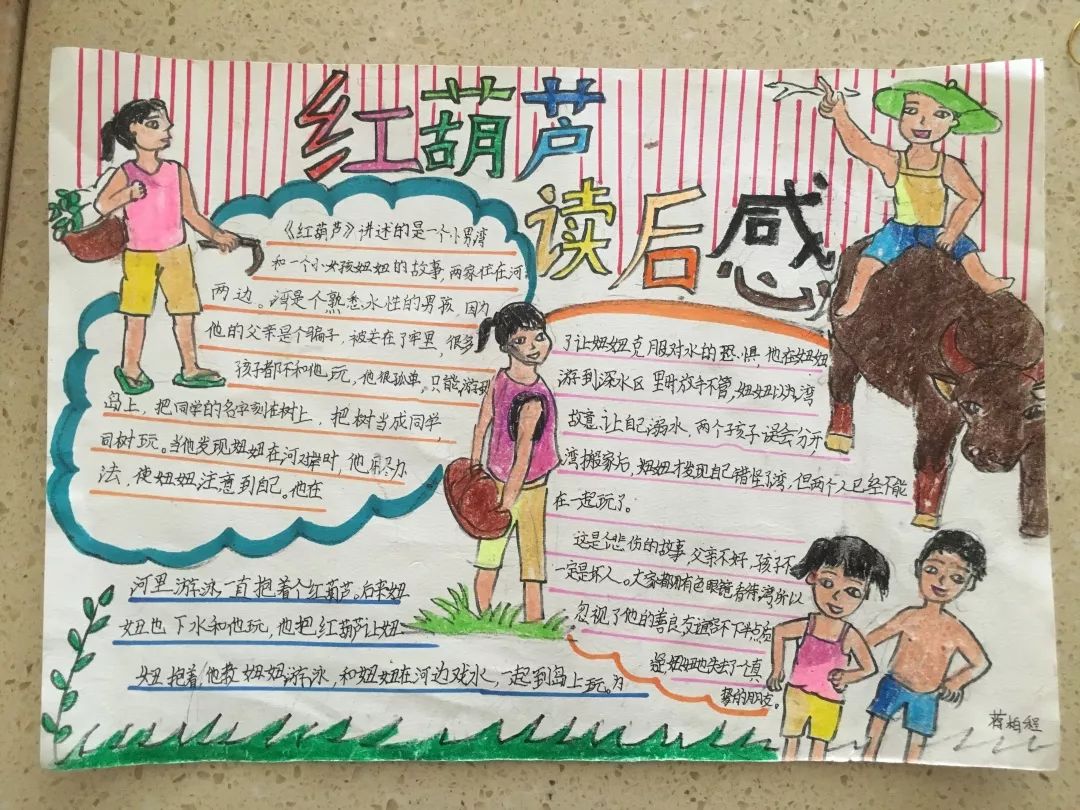 红葫芦
读后感
《红葫芦》讲述的是一个小男湾
和一个小女孩妞妞的故事,两家住在河
两边。湾是个熟悉水性的男孩,因为
他的父亲是个骗子,被关在了牢里,很多
孩子都不和他玩,他很孤单,只能游到
岛上,把同学的名字刻在树上,把树当成同学,
同树玩。当他发现妞妞在河对岸时,他用尽办
法,使妞妞注意到自己。他在
河里游泳一直抱着个红葫芦。后来妞
妞也下水和他玩,他把红葫芦让妞
妞抱着,他教妞妞游泳,和妞妞在河边戏水,一起到岛上玩。为
了让妞妞克服对水的恐惧,他在妞妞
游到深水区时放手不管,妞妞以为湾
故意让自己溺水,两个孩子误会分开
湾搬家后,妞妞才发现自己错怪了湾,但两个人已经不能
在一起玩了。
这是个悲伤的故事,父亲不好,孩子不
一定是坏人。大家都用有色眼镜看待湾所以
忽视了他的善良,
妞妞也失去了个真
挚的朋友。
蒋柏程